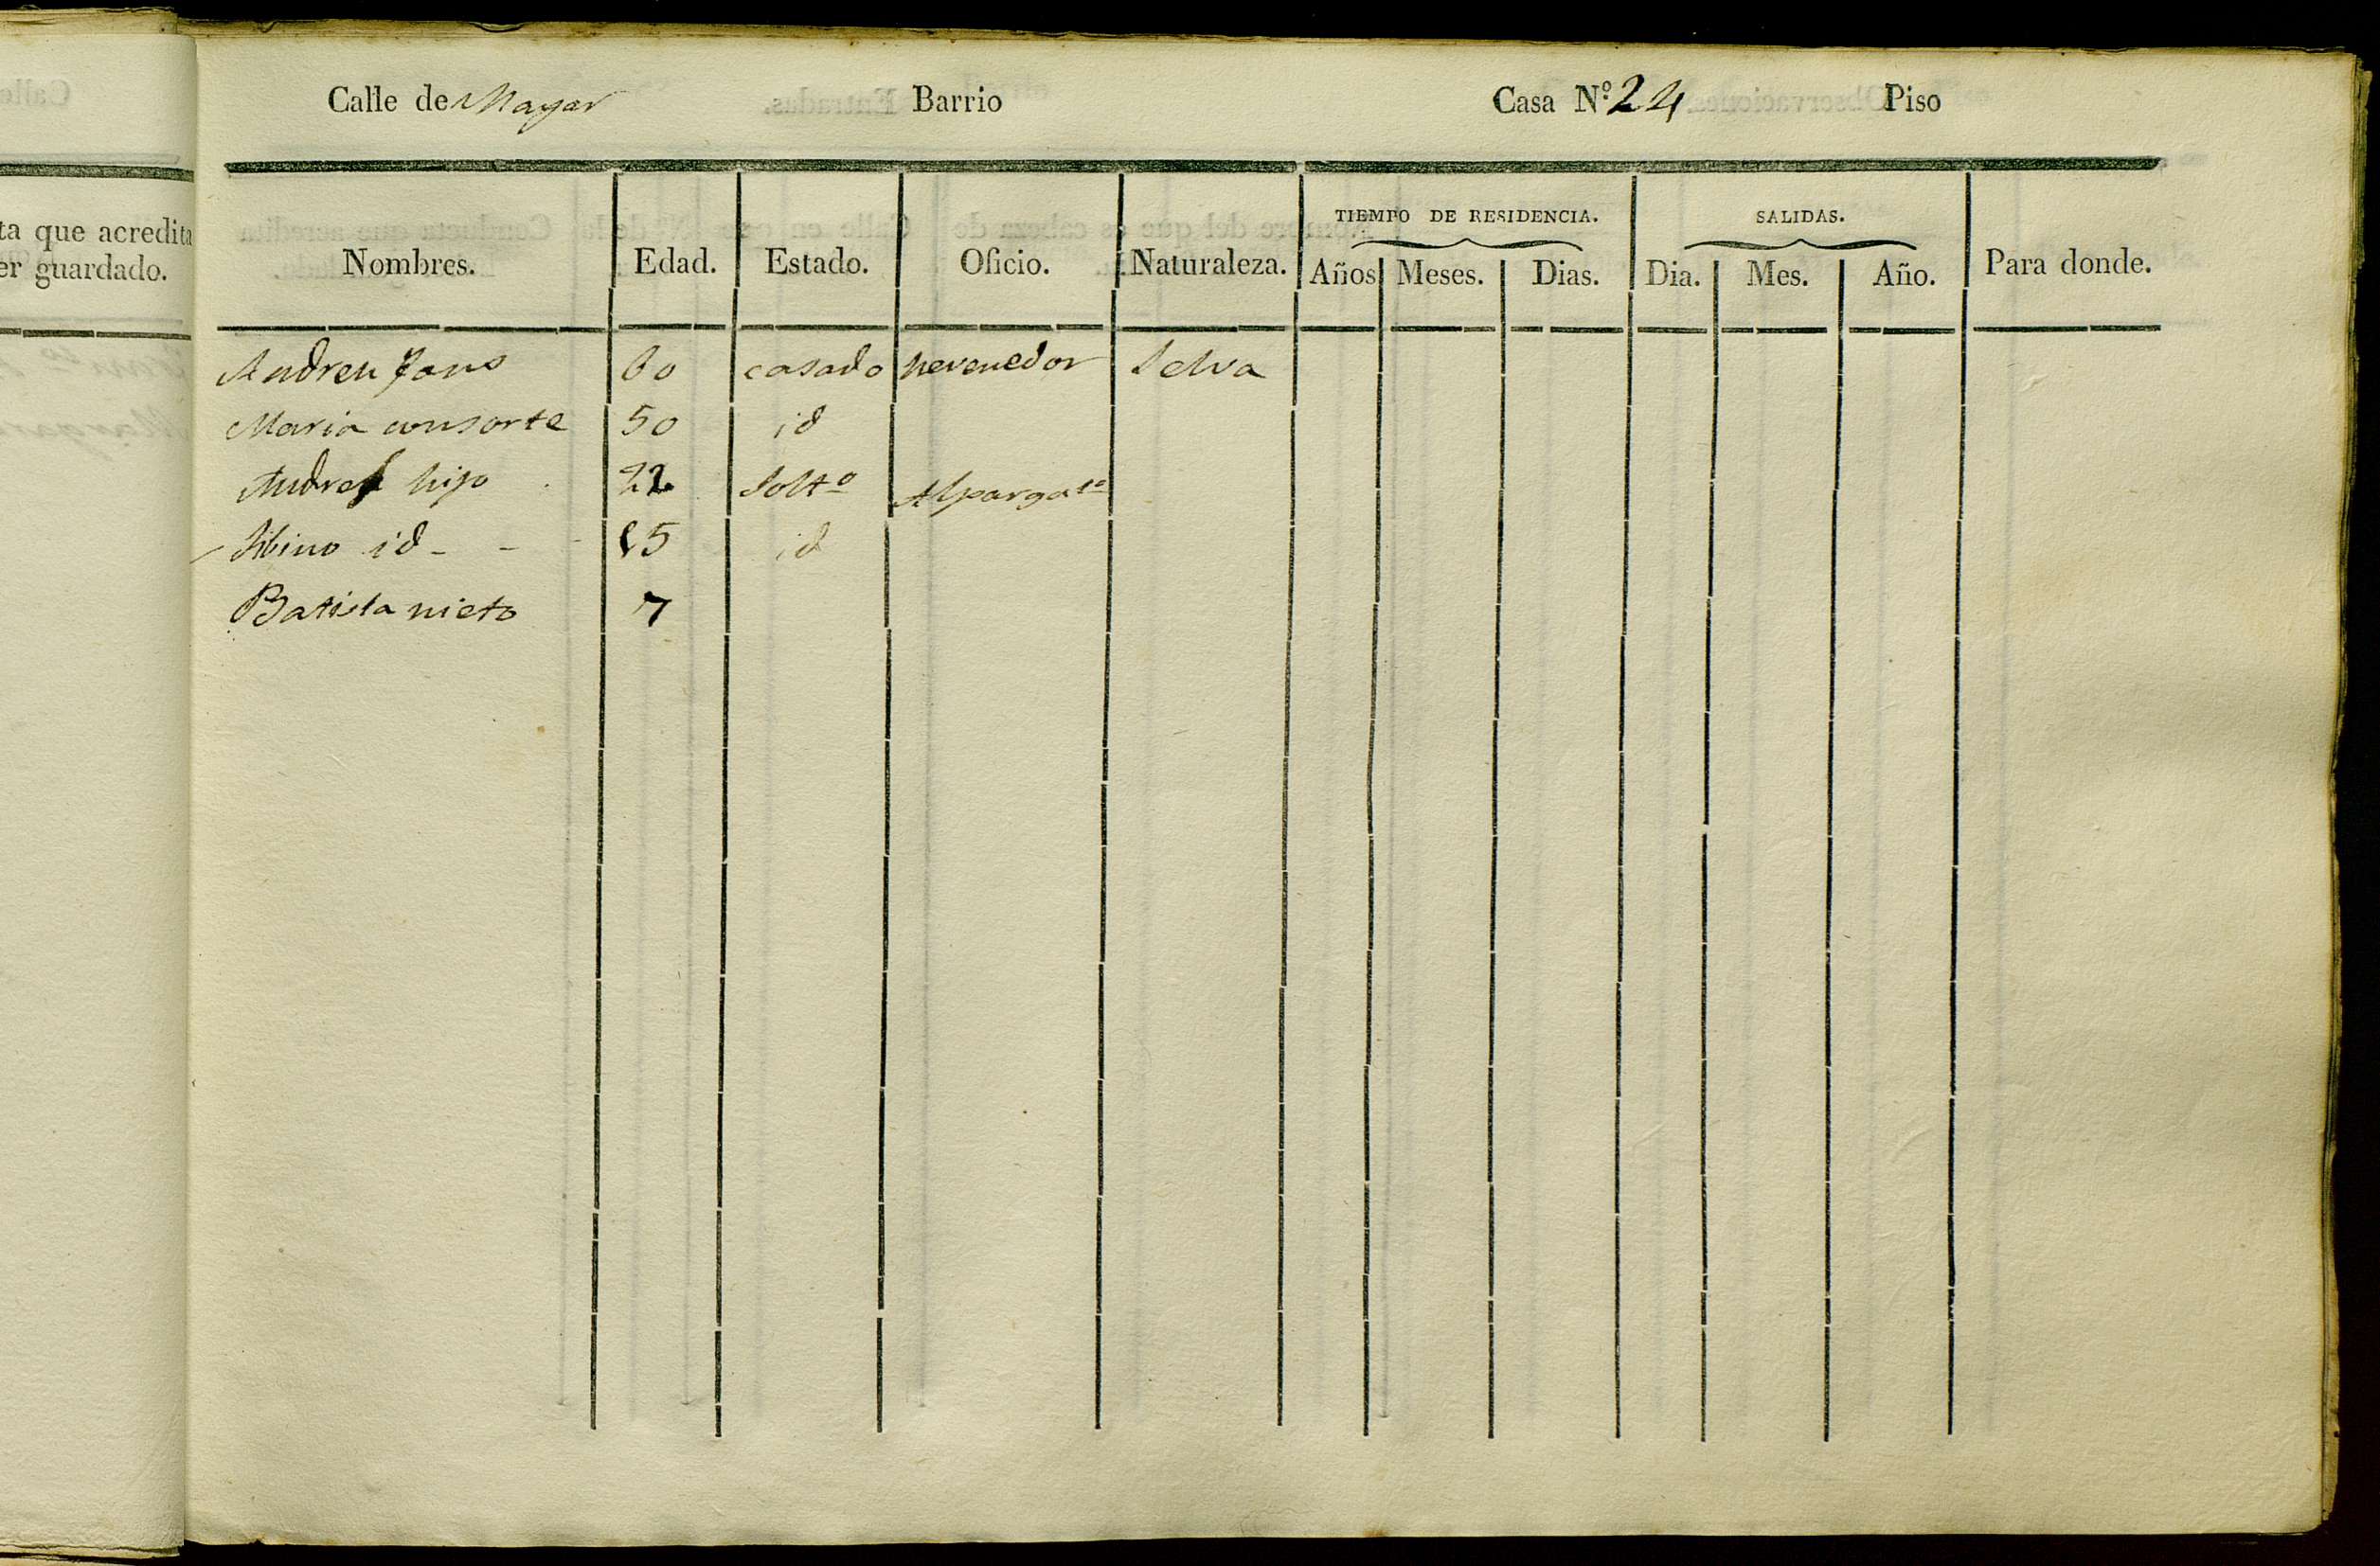 Calle de Mayor Barrio Casa N.º 24 Piso
ta que acredita
er guardado.
TIEMPO DE RESIDENCIA. SALIDAS.
Nombres. Edad. Estado. Oficio. Naturaleza. Años Meses. Dias. Dia. Mes. Año. Para donde.
Andreu Pons 60 casado Revenedor Selva
Maria consorte 50 id
Andreu hijo 22 Solt.º Alpargat.º
id - - 15 id
Batista nieto 7